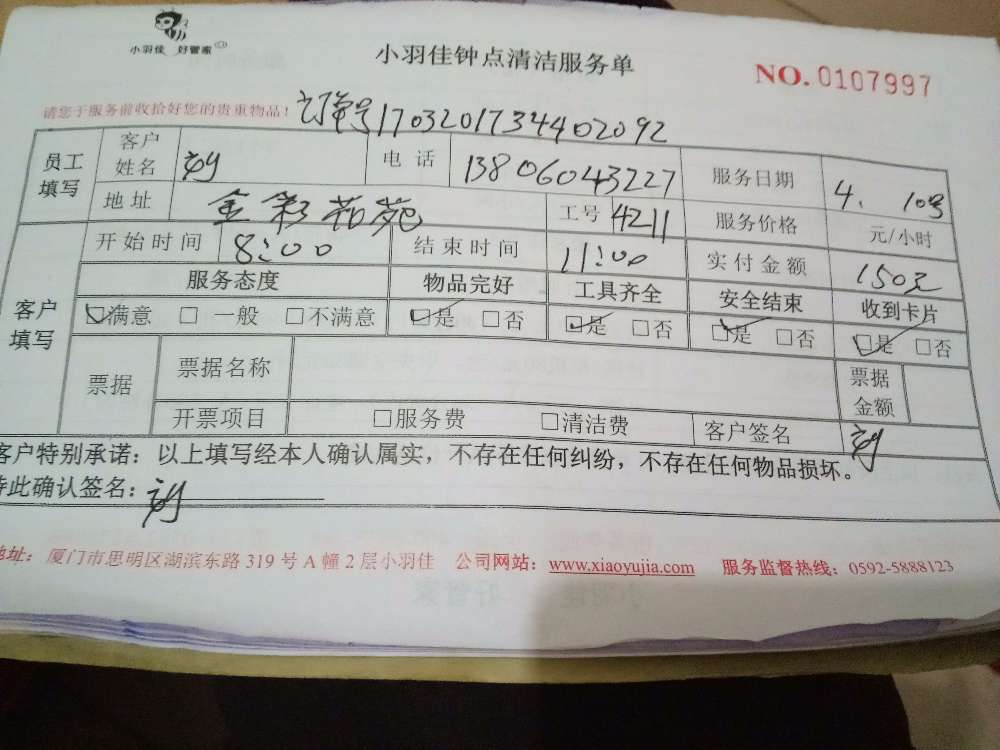 小羽佳 好管家
小羽佳钟点清洁服务单
NO. 0107997
请您于服务前收拾好您的贵重物品!
订单号1703201734402092
员工填写 客户姓名 刘 电话 13806043227 服务日期 4. 10号
地址 金彩花苑 工号 4211 服务价格 元/小时
客户填写 开始时间 8:00 结束时间 11:00 实付金额 150元
服务态度 物品完好 工具齐全 安全结束 收到卡片
☑满意 □一般 □不满意 ☑是 □否 ☑是 □否 ☑是 □否 ☑是 □否
票据 票据名称 票据金额
开票项目 □服务费 □清洁费 客户签名 刘
客户特别承诺：以上填写经本人确认属实，不存在任何纠纷，不存在任何物品损坏。
特此确认签名：刘
地址：厦门市思明区湖滨东路 319 号 A 幢 2 层小羽佳 公司网站：www.xiaoyujia.com 服务监督热线：0592-5888123